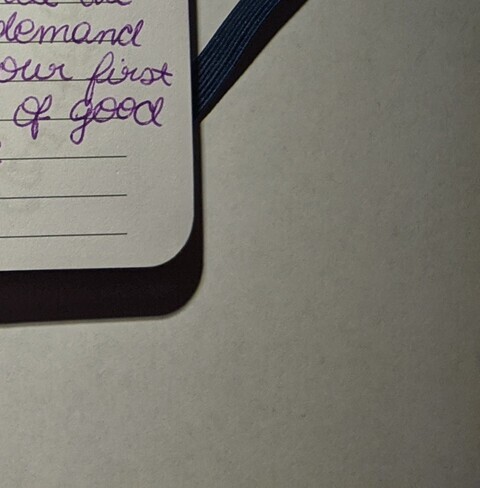 demand
our first
of good